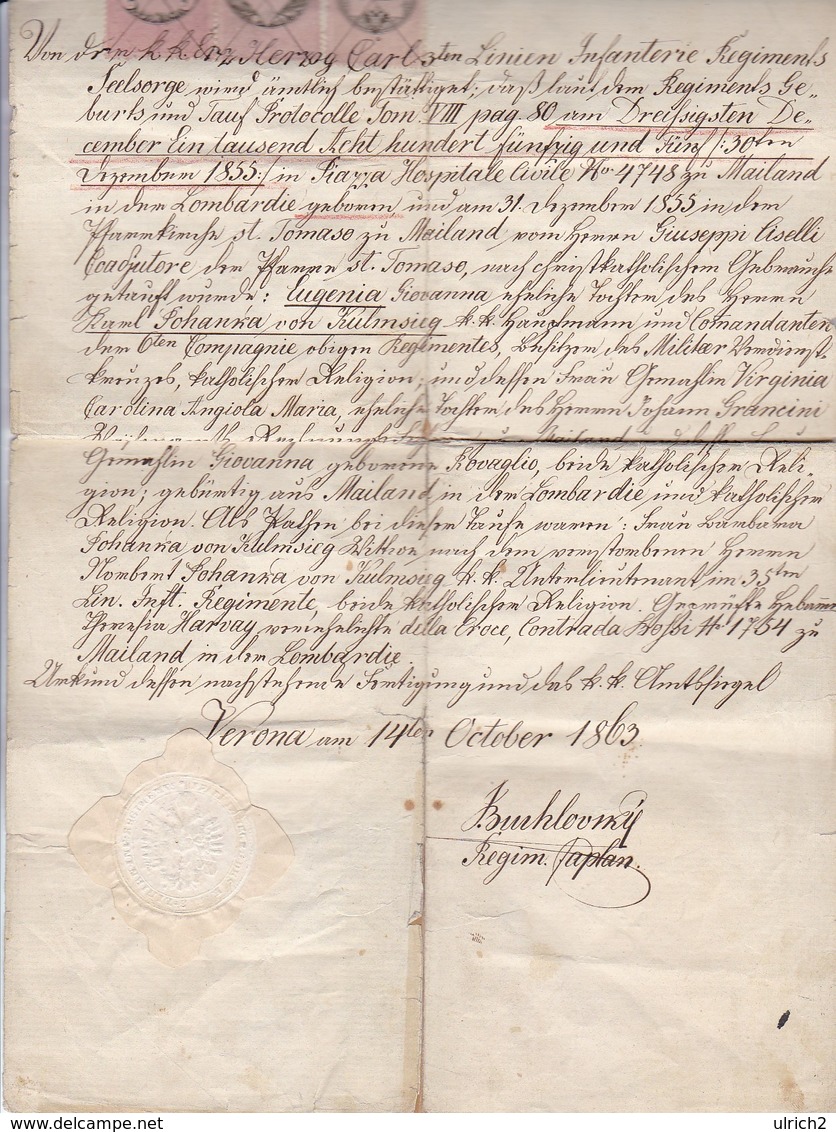 Von dem k. k. Erz Herzog Carl 3ten Linien Infanterie Regiments
Seelsorge wird ämtlich bestättiget; daß laut dem Regiments Ge-
burts und Tauf Protocolle Tom. VIII pag. 80 am Dreißigsten De-
cember Ein tausend Acht hundert fünfzig und Fünf /:30ten
Dezember 1855:/ in Piazza Hospitale Civile No 4748 zu Mailand
in der Lombardie geboren und am 31. Dezember 1855 in der
Pfarrkirche st. Tomaso zu Mailand vom Herrn Giuseppi Ciselli
Coadjutore der Pfarre st. Tomaso, nach christkatholischem Gebrauche
getauft wurde: Eugenia Giovanna eheliche Tochter des Herrn
Karl Johanka von Kulmsieg k. k. Hauptmann und Comandanten
der 6ten Compagnie obigen Regimentes, Besitzer des Militær Verdienst-
kreuzes, katholischer Religion; und dessen Frau Gemahlin Virginia
Carolina Angiola Maria, eheliche Tochter des Herrn Johann Grancini
Gemahlin Giovanna geborene Rovaglio, beide katholischer Reli-
gion; gebürtig aus Mailand in der Lombardie und katholischer
Religion. Als Pathen bei dieser Taufe waren: Frau Barbara
Johanka von Kulmsieg Wittwe nach dem verstorbenen Herrn
Norbert Johanka von Kulmsieg k. k. Unterlieutenant im 35ten
Lin. Inft. Regimente, beide katholischer Religion. Geprüfte Hebamme
Theresia Harvay verehelichte della Croce, Contrada Bossi No 1754 zu
Mailand in der Lombardie.
Urkund dessen nachstehende Fertigung und das k. k. Amtssiegel
Verona am 14ten October 1863
Buchlovský
Regim. Caplan.
ulrich2